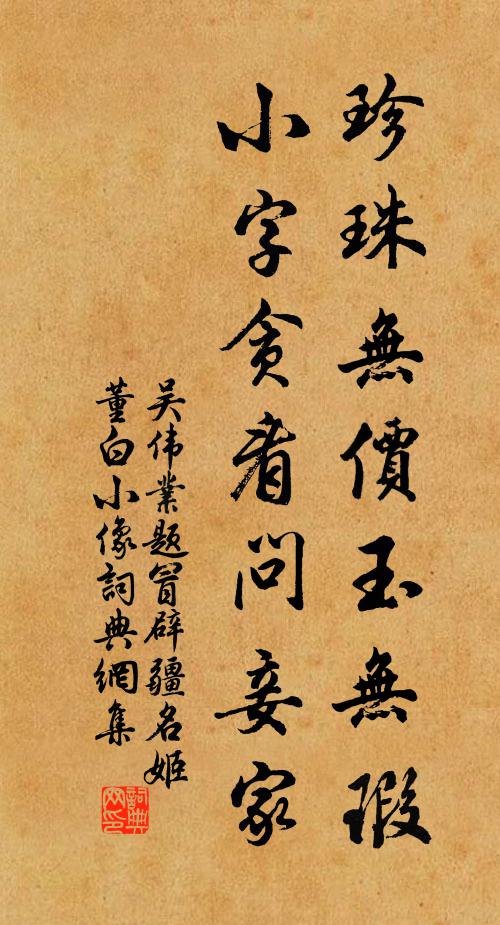 珍珠無價玉無瑕
小字貪看問妾家
吴伟業题冒辟疆名姬
董白小像詞典網集
詞典网印